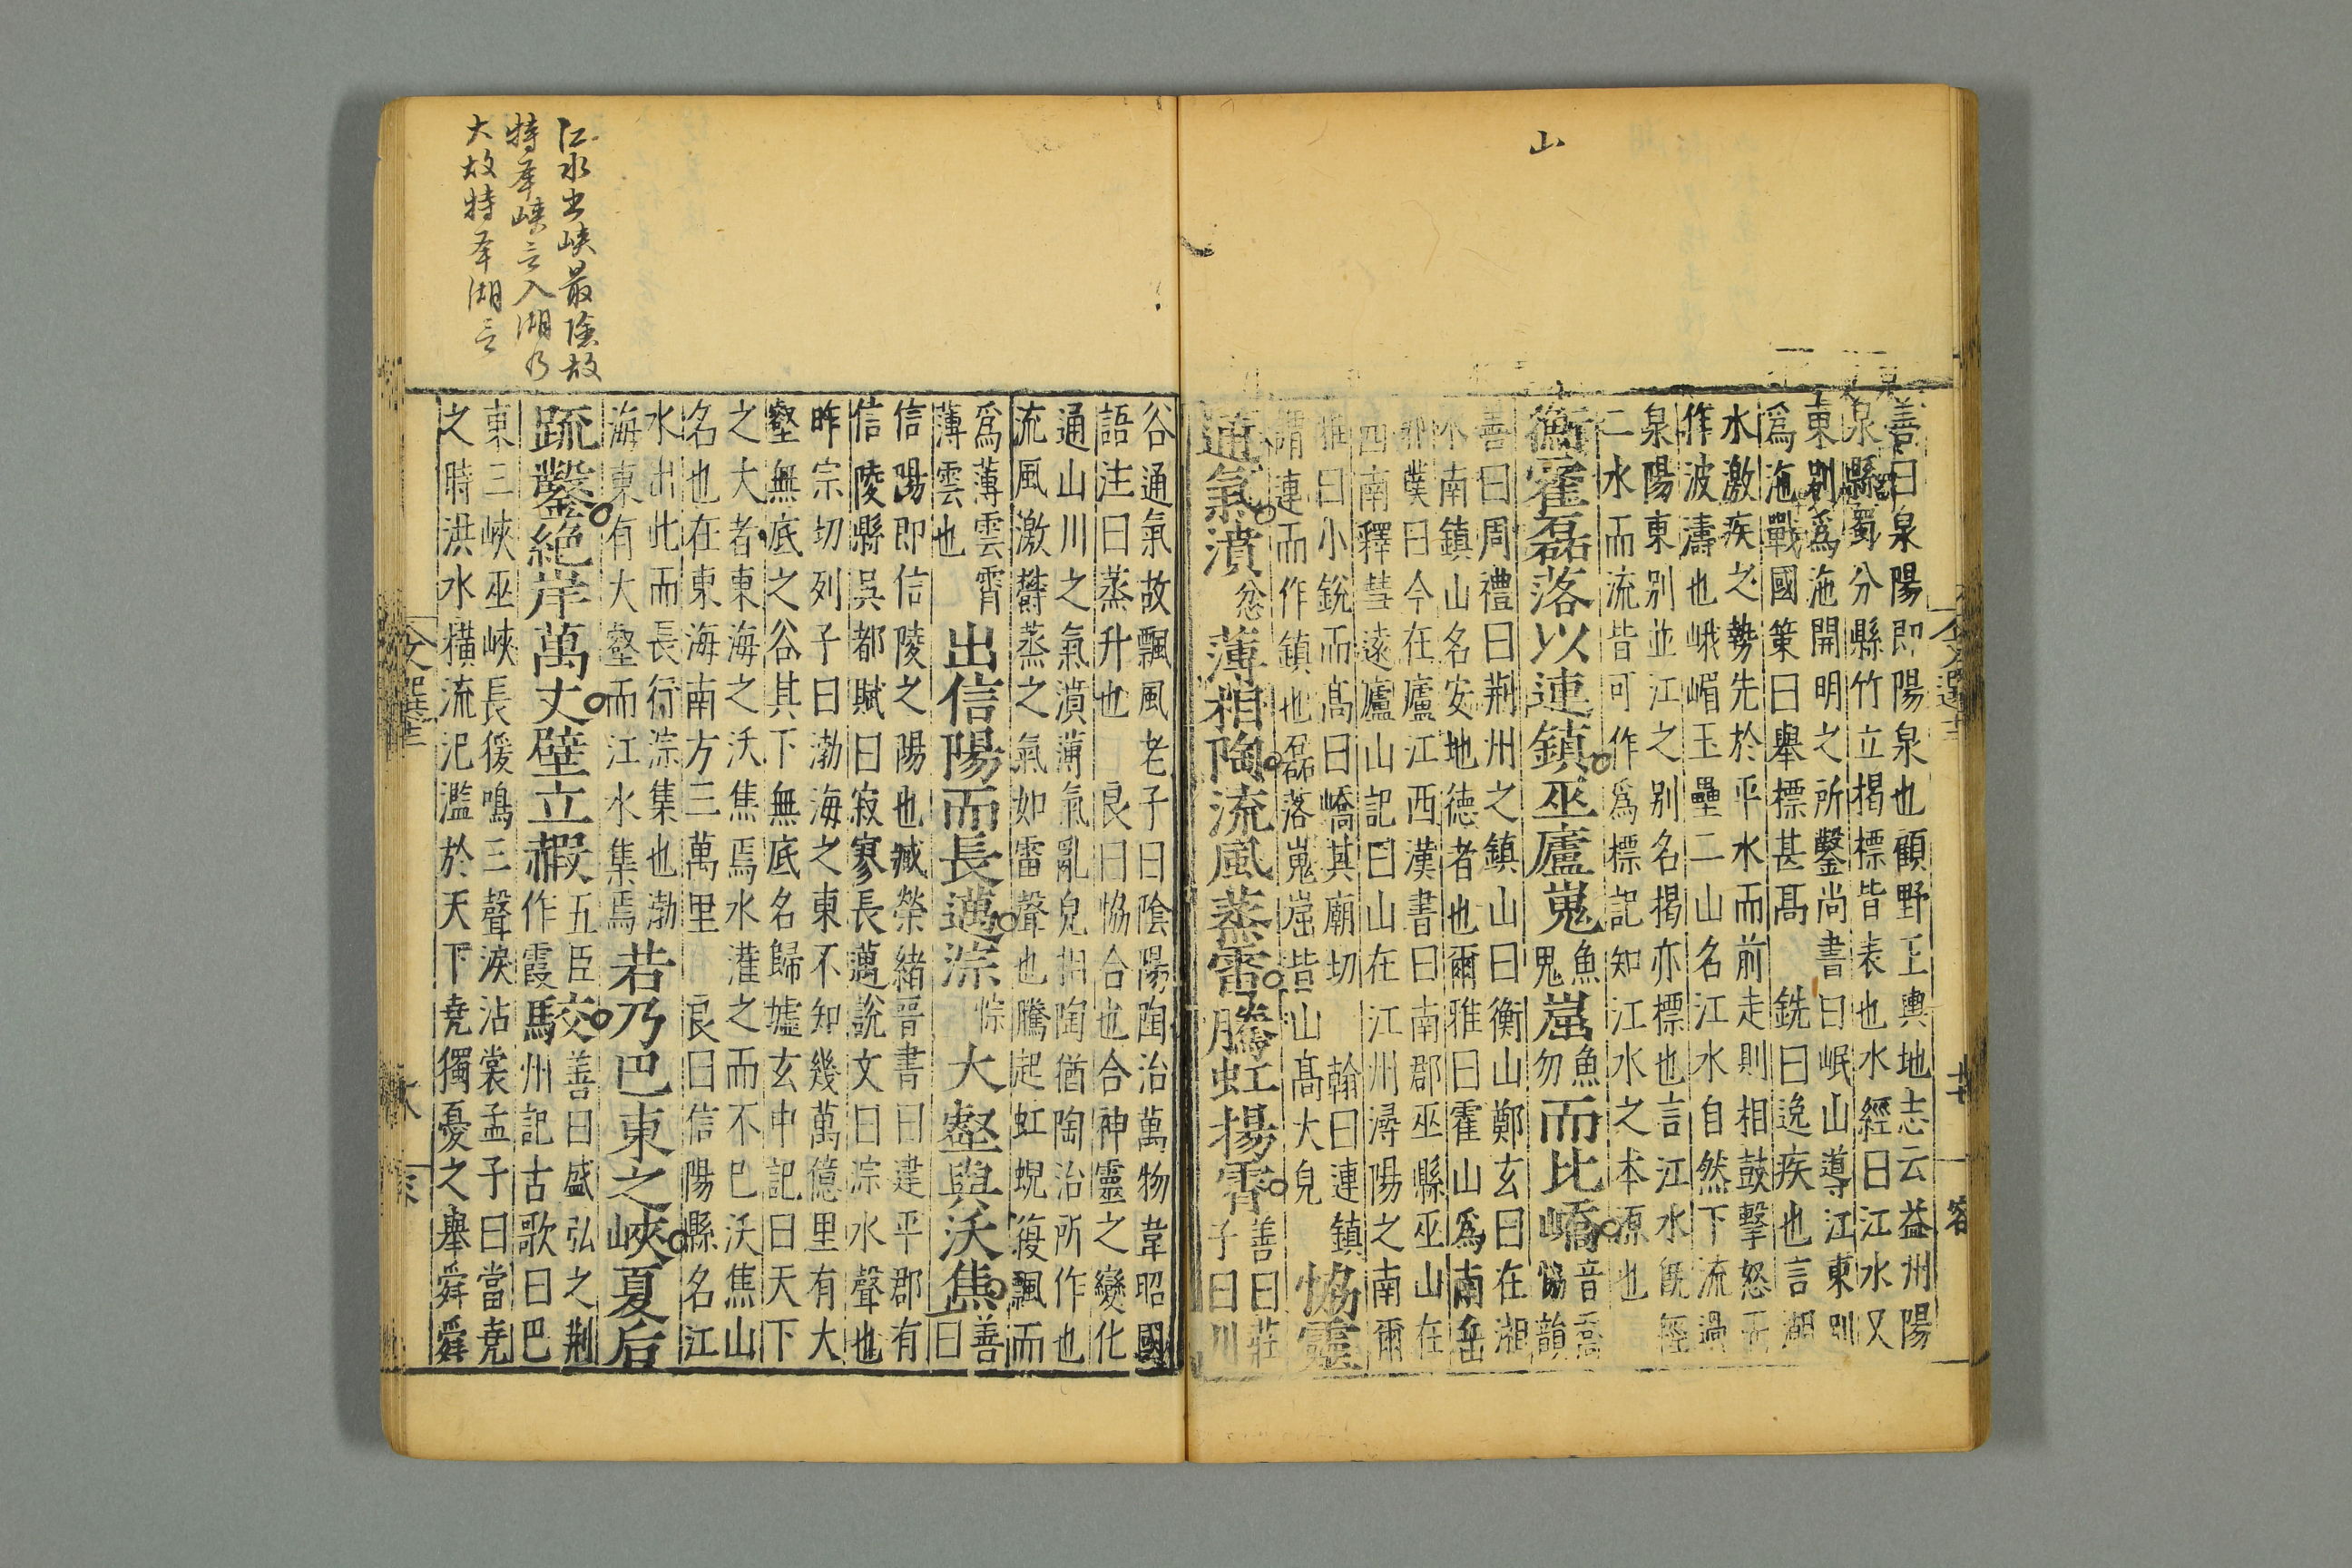 山
善曰泉陽即陽泉也顧野王輿地志云益州陽
泉縣蜀分縣竹立揭標皆表也水經曰江水又
東別爲沲開明之所鑿尚書曰岷山導江東別
爲沲戰國策曰舉標甚髙 銑曰逸疾也言湖
水激疾之勢先於平水而前走則相鼓擊怒而
作波濤也峨嵋玉壘二山名江水自然下流過
泉陽東別並江之別名揭亦標也言江水旣經
二水而流皆可作爲標記知江水之本源也
衡霍磊落以連鎮巫廬嵬魚鬼崫魚勿而比嶠音喬恊韻
善曰周禮曰荆州之鎮山曰衡山鄭玄曰在湘
水南鎮山名安地德者也爾雅曰霍山爲南岳
郭璞曰今在廬江西漢書曰南郡巫縣巫山在
西南釋彗遠廬山記曰山在江州潯陽之南爾
雅曰小銳而髙曰嶠其廟切 翰曰連鎮
謂連而作鎮也磊落嵬崫皆山髙大皃 恊靈
通氣濆忿薄相陶流風蒸雷騰虹揚霄善曰莊子曰川
谷通氣故飄風老子曰陰陽陶冶萬物韋昭國
語注曰蒸升也 良曰恊合也合神靈之變化
通山川之氣濆薄氣亂皃相陶猶陶冶所作也
流風激欝蒸之氣如雷聲也騰起虹蜺復飄而
爲薄雲霄
薄雲也 出信陽而長邁淙悰大壑與沃焦善曰
信陽即信陵之陽也臧榮緒晉書曰建平郡有
信陵縣吳都賦曰寂寥長邁說文曰淙水聲也
昨宗切列子曰渤海之東不知幾萬億里有大
壑無底之谷其下無底名歸墟玄中記曰天下
之大者東海之沃焦焉水灌之而不巳沃焦山
名也在東海南方三萬里 良曰信陽縣名江
水出此而長行淙集也渤
海東有大壑而江水集焉 若乃巴東之峽夏后
疏鑿絶岸萬丈壁立赮五臣作霞駮善曰盛弘之荆州記古歌曰巴
東三峽巫峽長猨鳴三聲淚沾裳孟子曰當堯
之時洪水橫流汜濫於天下堯獨憂之舉舜舜
江水出峽最險故
特奉峽言入湖乃
大故特奉湖言